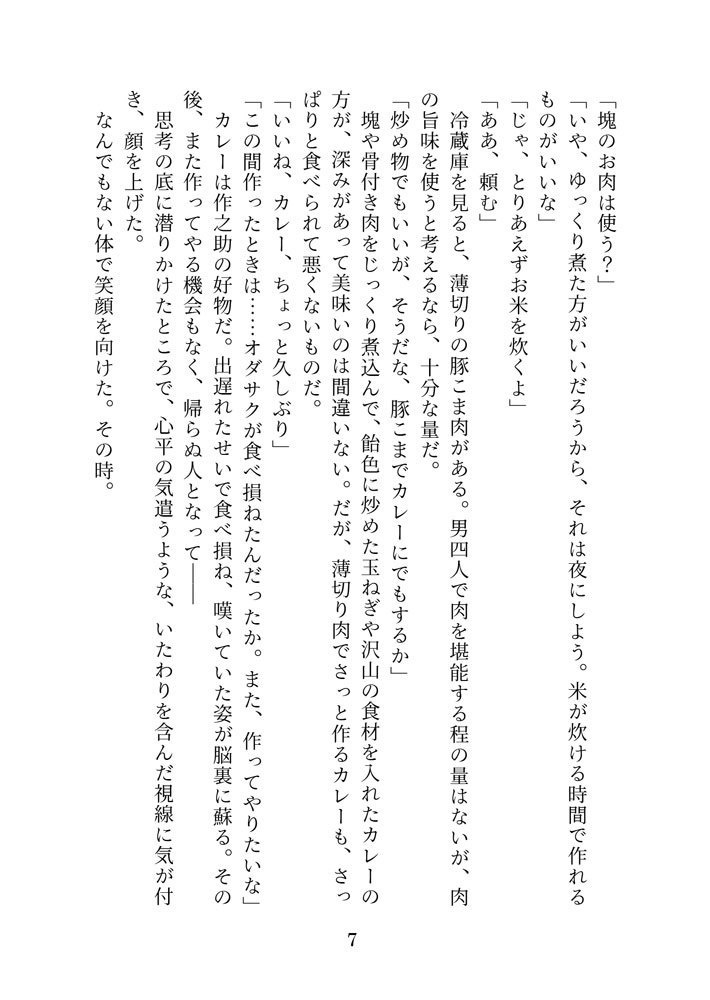 「塊のお肉は使う？」
「いや、ゆっくり煮た方がいいだろうから、それは夜にしよう。米が炊ける時間で作れる
ものがいいな」
「じゃ、とりあえずお米を炊くよ」
「ああ、頼む」
　冷蔵庫を見ると、薄切りの豚こま肉がある。男四人で肉を堪能する程の量はないが、肉
の旨味を使うと考えるなら、十分な量だ。
「炒め物でもいいが、そうだな、豚こまでカレーにでもするか」
　塊や骨付き肉をじっくり煮込んで、飴色に炒めた玉ねぎや沢山の食材を入れたカレーの
方が、深みがあって美味いのは間違いない。だが、薄切り肉でさっと作るカレーも、さっ
ぱりと食べられて悪くないものだ。
「いいね、カレー、ちょっと久しぶり」
「この間作ったときは……オダサクが食べ損ねたんだったか。また、作ってやりたいな」
　カレーは作之助の好物だ。出遅れたせいで食べ損ね、嘆いていた姿が脳裏に蘇る。その
後、また作ってやる機会もなく、帰らぬ人となって――
　思考の底に潜りかけたところで、心平の気遣うような、いたわりを含んだ視線に気が付
き、顔を上げた。
　なんでもない体で笑顔を向けた。その時。
7